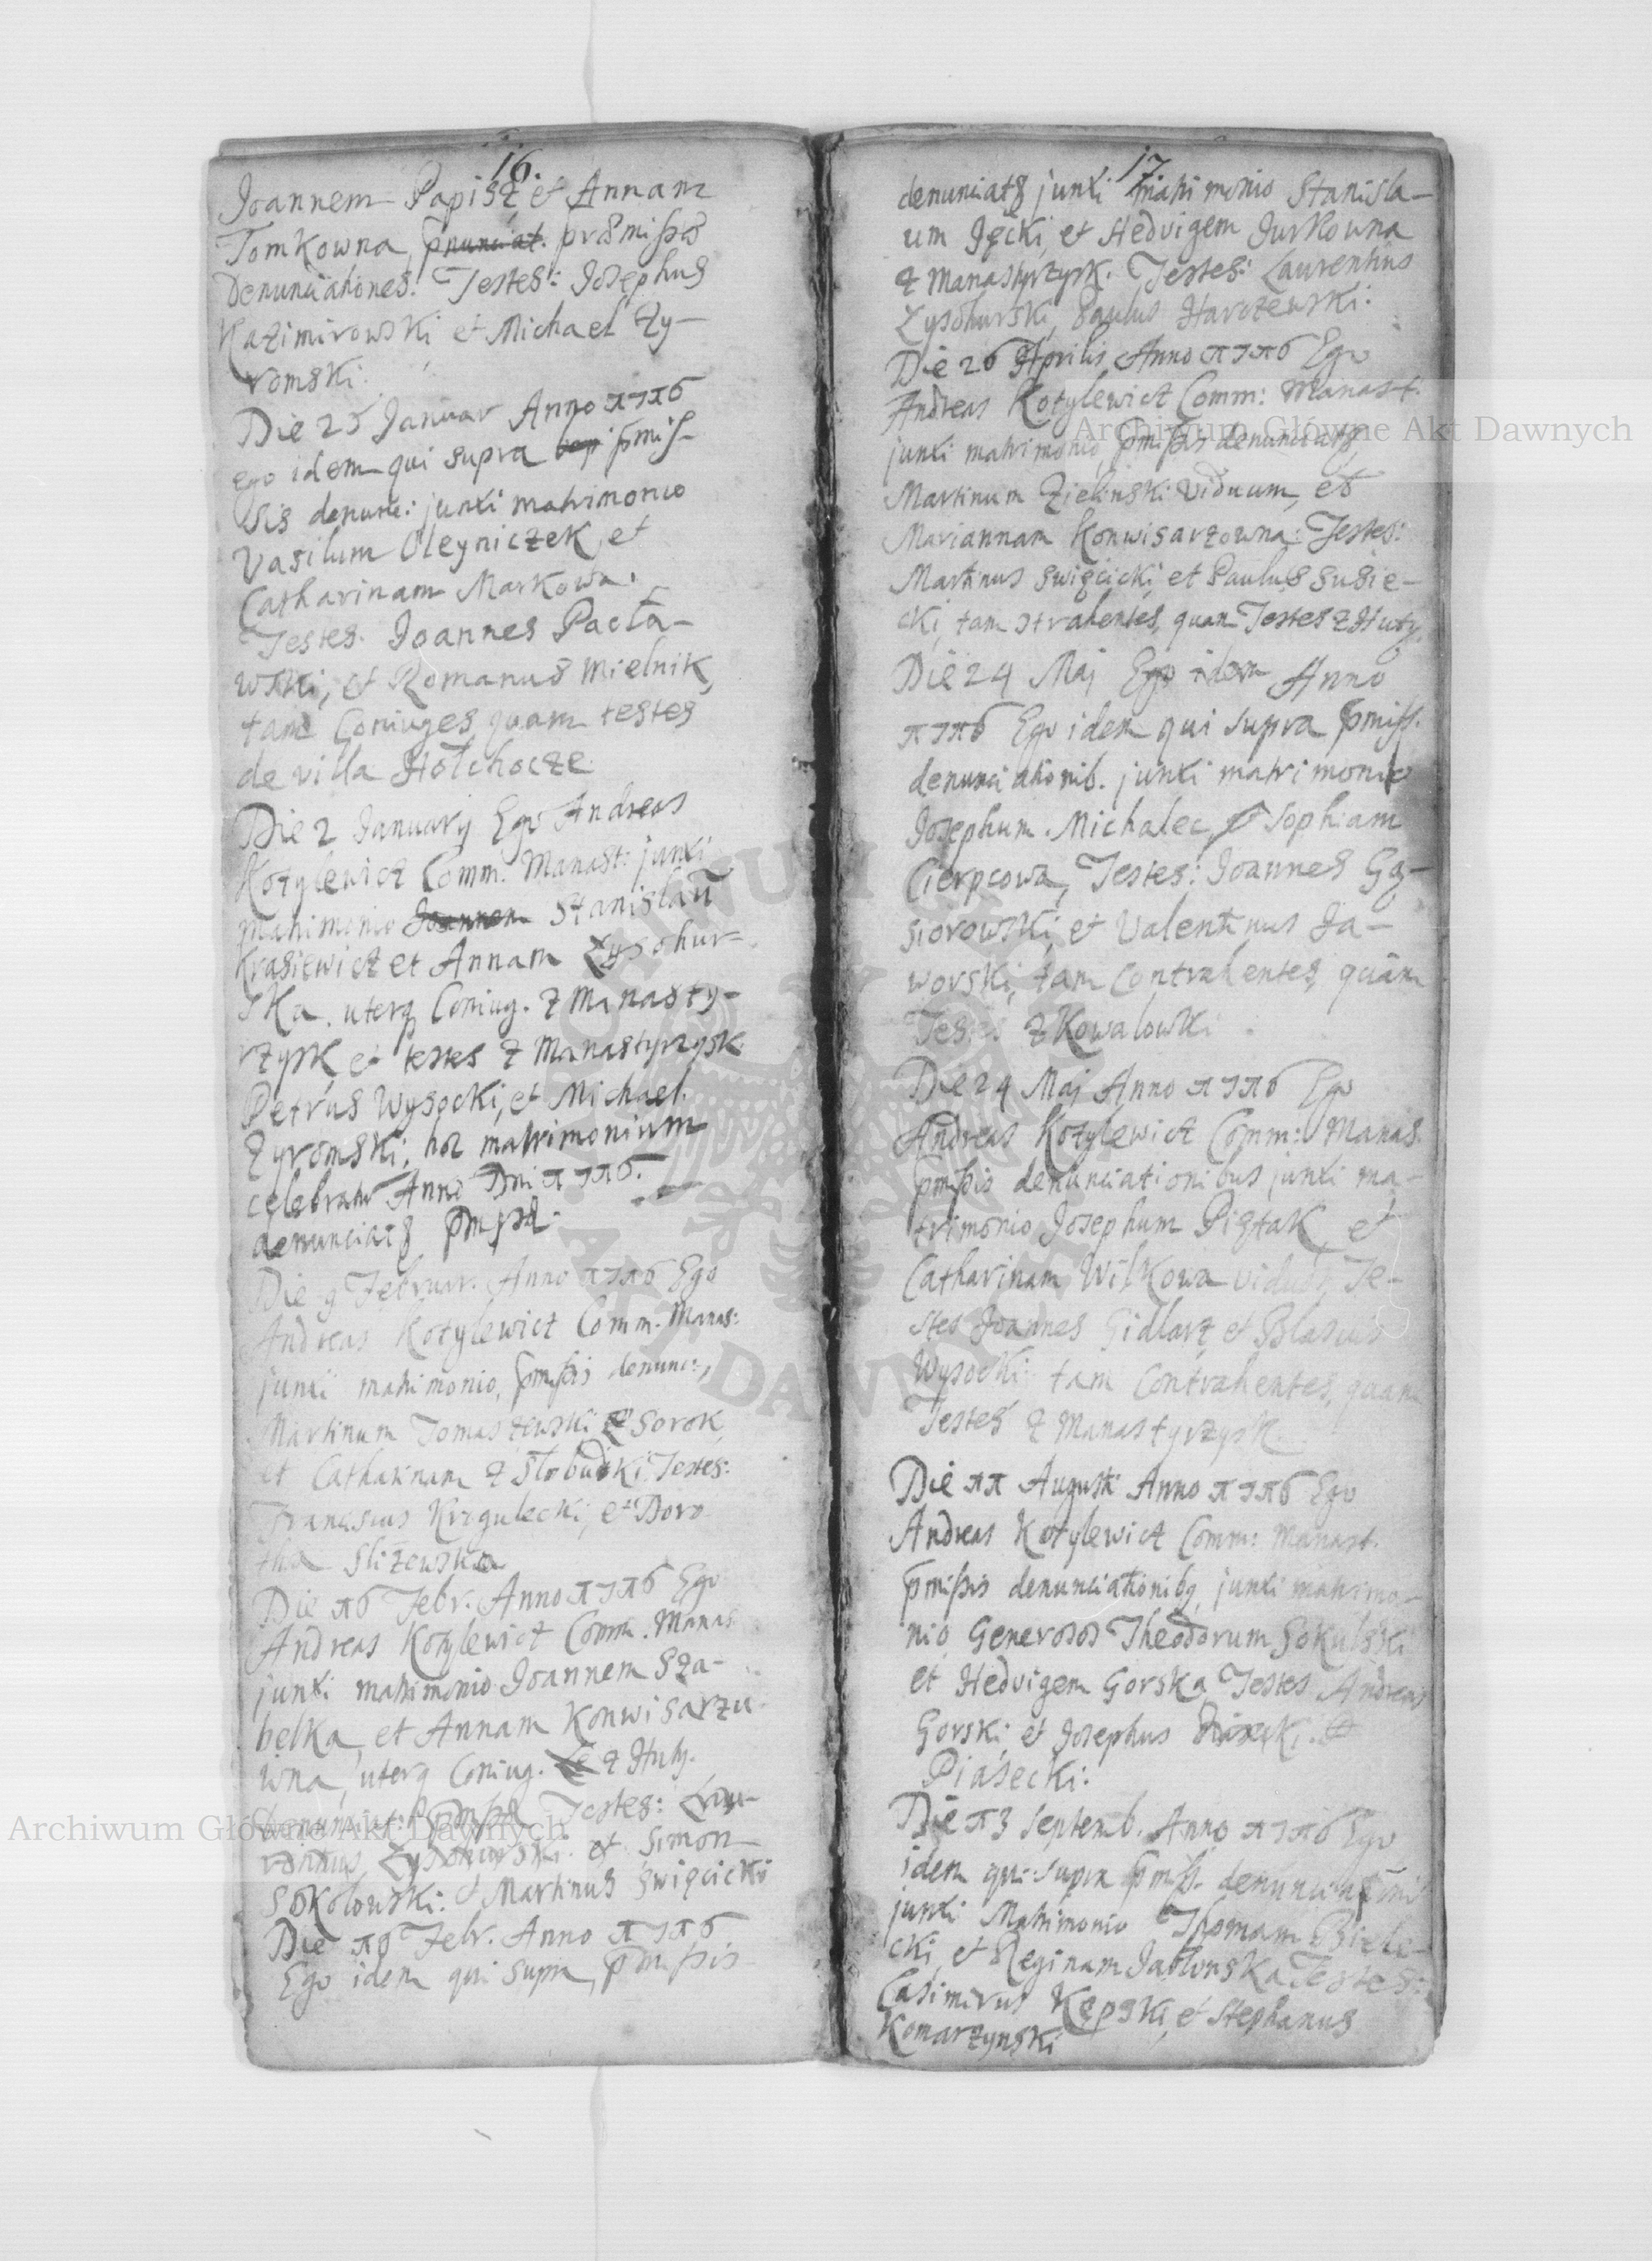 16.
Joannem Papisz et Annam
Tomkowna, pnunciat. præmissis
Denunciationes. Testes: Josephus
Kazimirowski et Michael Zy-
romski.
Die 25 Januar Anno 1716
ego idem qui supra pmis-
sis denunc: junxi matrimonio
Vasilum Oleyniczek et
Catharinam Markowa.
Testes. Joannes Pacła-
wski, et Romanus Mielnik,
tam Coniuges quam testes
de villa Hołchocze.
Die 2 Januarij Ego Andreas
Kotylewicz Comm: Manast: junxi
matrimonio Joannem Stanislaū
Krasiewicz et Annam Łysohur-
ska. uterq Coniug. z Manasty-
rzysk et testes z Manastyrzysk
Petrus Wysocki, et Michael
Zyromski; hoc matrimonium
celebratur Anno Dni 1716.
denunciat pmiss.
Die 9 Februar. Anno 1716 Ego
Andreas Kotylewicz Comm. Manas:
junxi matrimonio, pmissis denunc:,
Martinum Tomaszewski z Sorok
et Catharinam z Słobudki Testes:
Franciscus Krogulecki, et Doro
tha Slizewska
Die 16 Febr. Anno 1716 Ego
Andreas Kotylewicz Comm. Manas
junxi matrimonio Joannem Sza-
belka, et Annam Konwisarzu
wna, uterq Coniug. z Huty.
denunciat: pmiss Testes: Lau-
rentius Łysohurski et Simon
Sokolowski. et Martinus Swięcicki
Die 18 Febr. Anno 1716
Ego idem qui supra, pmissis
17
denunciat junxi matrimonio Stanisla-
um Jęcki, et Hedvigem Jurkowna
z Manastyrzysk. Testes: Laurentius
Łysohurski, Paulus Harczewski:
Die 26 Aprilis Anno 1716 Ego
Andreas Kotylewicz Comm: Manast.
junxi matrimonio, pmissis denunciat,
Martinum Zielinski Viduum, et
Mariannam Konwisarzowna: Testes:
Martinus Swięcicki et Paulus Susie-
cki, tam ctrahentes, quam Testes z Huty.
Die 24 Maj Ego idem Anno
1716 Ego idem qui supra pmiss.
denunciationib. junxi matrimonio
Josephum Michalec, et Sophiam
Cierpcowa, Testes: Joannes Gą-
siorowski, et Valentinus Ja-
worski, tam Contrahentes, quàm
Testes z Kowalowki.
Die 24 Maj Anno 1716 Ego
Andreas Kotylewicz Comm: Manas.
pmissis denunciationibus junxi ma-
trimonio Josephum Piętak, et
Catharinam Wilkowa viduā, Te-
stes Joannes Gidlarz et Blasius
Wysocki tam Contrahentes, quam
Testes z Manastyrzysk.
Die 11 Augusti Anno 1716 Ego
Andreas Kotylewicz Comm: Manast.
pmissis denunciationibq, junxi matrimo-
nio, Generosos Theodorum Sokulski
et Hedvigem Gorska Testes Andreas
Gorski et Josephus
Piasecki:
Die 13 Septemb. Anno 1716 Ego
idem qui supra pmiss. denunciatōni
junxi Matrimonio Thomam Biele-
cki, et Reginam Jablonska Testes:
Casimirus Kępski, et Stephanus
Komarzynski
Archiwum Główne Akt Dawnych
Archiwum Główne Akt Dawnych